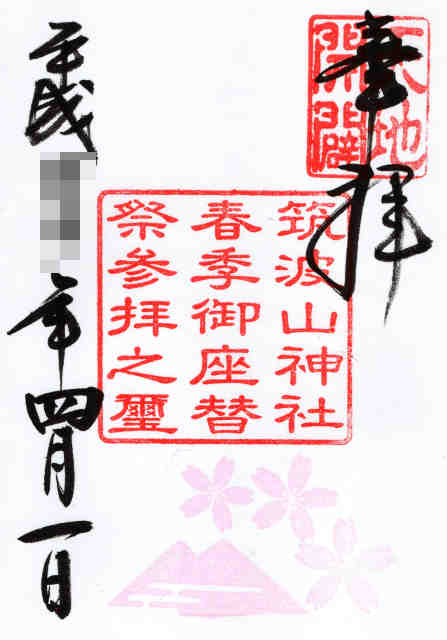 奉拝
天地
開闢
筑波山神社
春季御座替
祭参拝之璽
平成
年四月一日